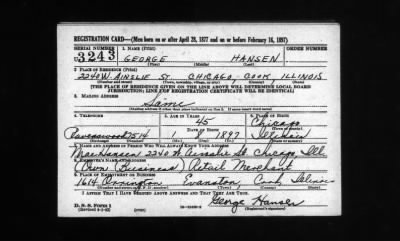 REGISTRATION CARD—(Men born on or after April 28, 1877 and on or before February 16, 1897)
SERIAL NUMBER 1. NAME (Print) ORDER NUMBER
3243 GEORGE HANSEN
(First) (Middle) (Last)
2. PLACE OF RESIDENCE (Print)
2240 W. AINSLIE ST. CHICAGO, COOK ILLINOIS
(Number and street) (Town, township, village, or city) (County) (State)
[THE PLACE OF RESIDENCE GIVEN ON THE LINE ABOVE WILL DETERMINE LOCAL BOARD
JURISDICTION; LINE 2 OF REGISTRATION CERTIFICATE WILL BE IDENTICAL]
3. MAILING ADDRESS
Same
[Mailing address if other than place indicated on line 2. If same insert word same]
4. TELEPHONE 5. AGE IN YEARS 6. PLACE OF BIRTH
45 Chicago
DATE OF BIRTH (Town or county)
Ravenswood 7514 1 8 1897 Illinois
(Exchange) (Number) (Mo.) (Day) (Yr.) (State or country)
7. NAME AND ADDRESS OF PERSON WHO WILL ALWAYS KNOW YOUR ADDRESS
Mae Hansen 2240 W Ainslie St. Chicago, Ill.
8. EMPLOYER'S NAME AND ADDRESS
Own Business) Retail Merchant
9. PLACE OF EMPLOYMENT OR BUSINESS
1614 Orrington Evanston Cook Illinois
(Number and street or R. F. D. number) (Town) (County) (State)
I AFFIRM THAT I HAVE VERIFIED ABOVE ANSWERS AND THAT THEY ARE TRUE.
D. S. S. Form 1
George Hansen